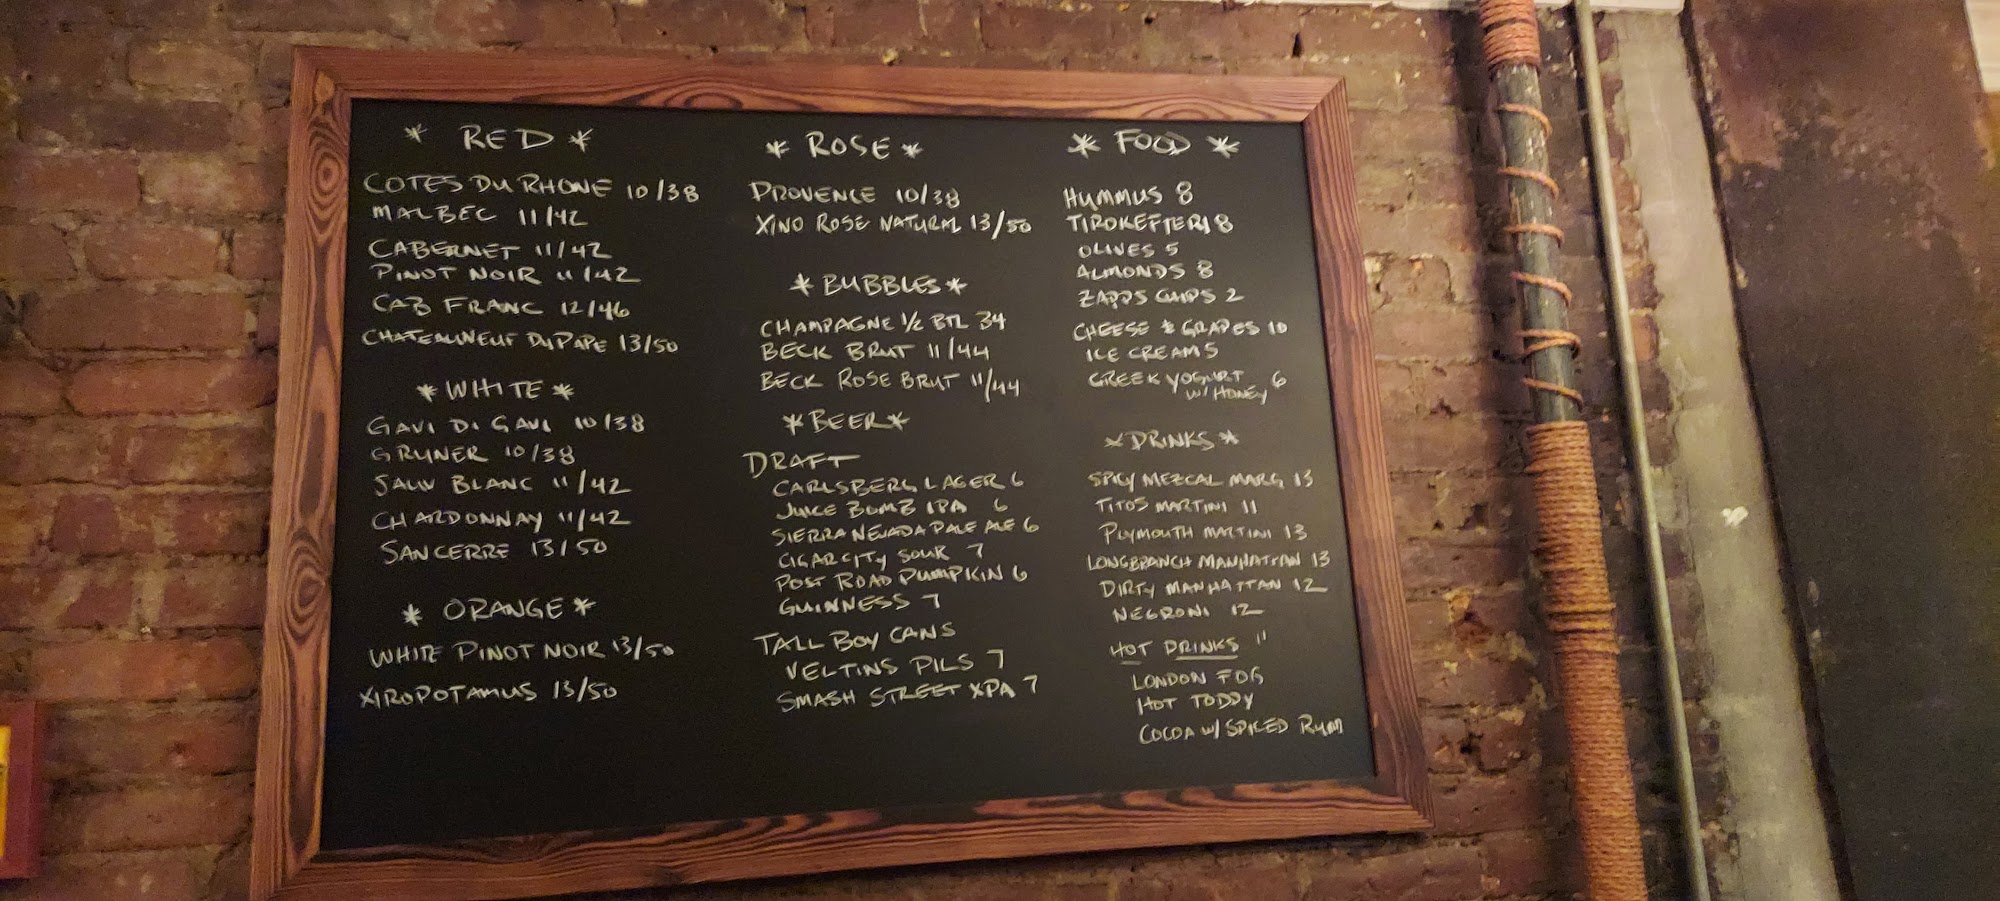 * RED *
COTES DU RHONE 10/38
MALBEC 11/42
CABERNET 11/42
PINOT NOIR 11/42
CAB FRANC 12/46
CHATEAUNEUF DU PAPE 13/50
* WHITE *
GAVI DI GAVI 10/38
GRUNER 10/38
SAUV BLANC 11/42
CHARDONNAY 11/42
SANCERRE 13/50
* ORANGE *
WHITE PINOT NOIR 13/50
XIROPOTAMUS 13/50
* ROSE *
PROVENCE 10/38
XINO ROSE NATURAL 13/50
* BUBBLES *
CHAMPAGNE 1/2 BTL 34
BECK BRUT 11/44
BECK ROSE BRUT 11/44
* BEER *
DRAFT
CARLSBERG LAGER 6
JUICE BOMB IPA 6
SIERRA NEVADA PALE ALE 6
CIGAR CITY SOUR 7
POST ROAD PUMPKIN 6
GUINNESS 7
TALL BOY CANS
VELTINS PILS 7
SMASH STREET XPA 7
* FOOD *
HUMMUS 8
TIROKEFTERI 8
OLIVES 5
ALMONDS 8
ZAPPS CHIPS 2
CHEESE & GRAPES 10
ICE CREAM 5
GREEK YOGURT 6
W/ HONEY
* DRINKS *
SPICY MEZCAL MARG 13
TITOS MARTINI 11
PLYMOUTH MARTINI 13
LONGBRANCH MANHATTAN 13
DIRTY MANHATTAN 12
NEGRONI 12
HOT DRINKS 11
LONDON FOG
HOT TODDY
COCOA W/ SPICED RUM